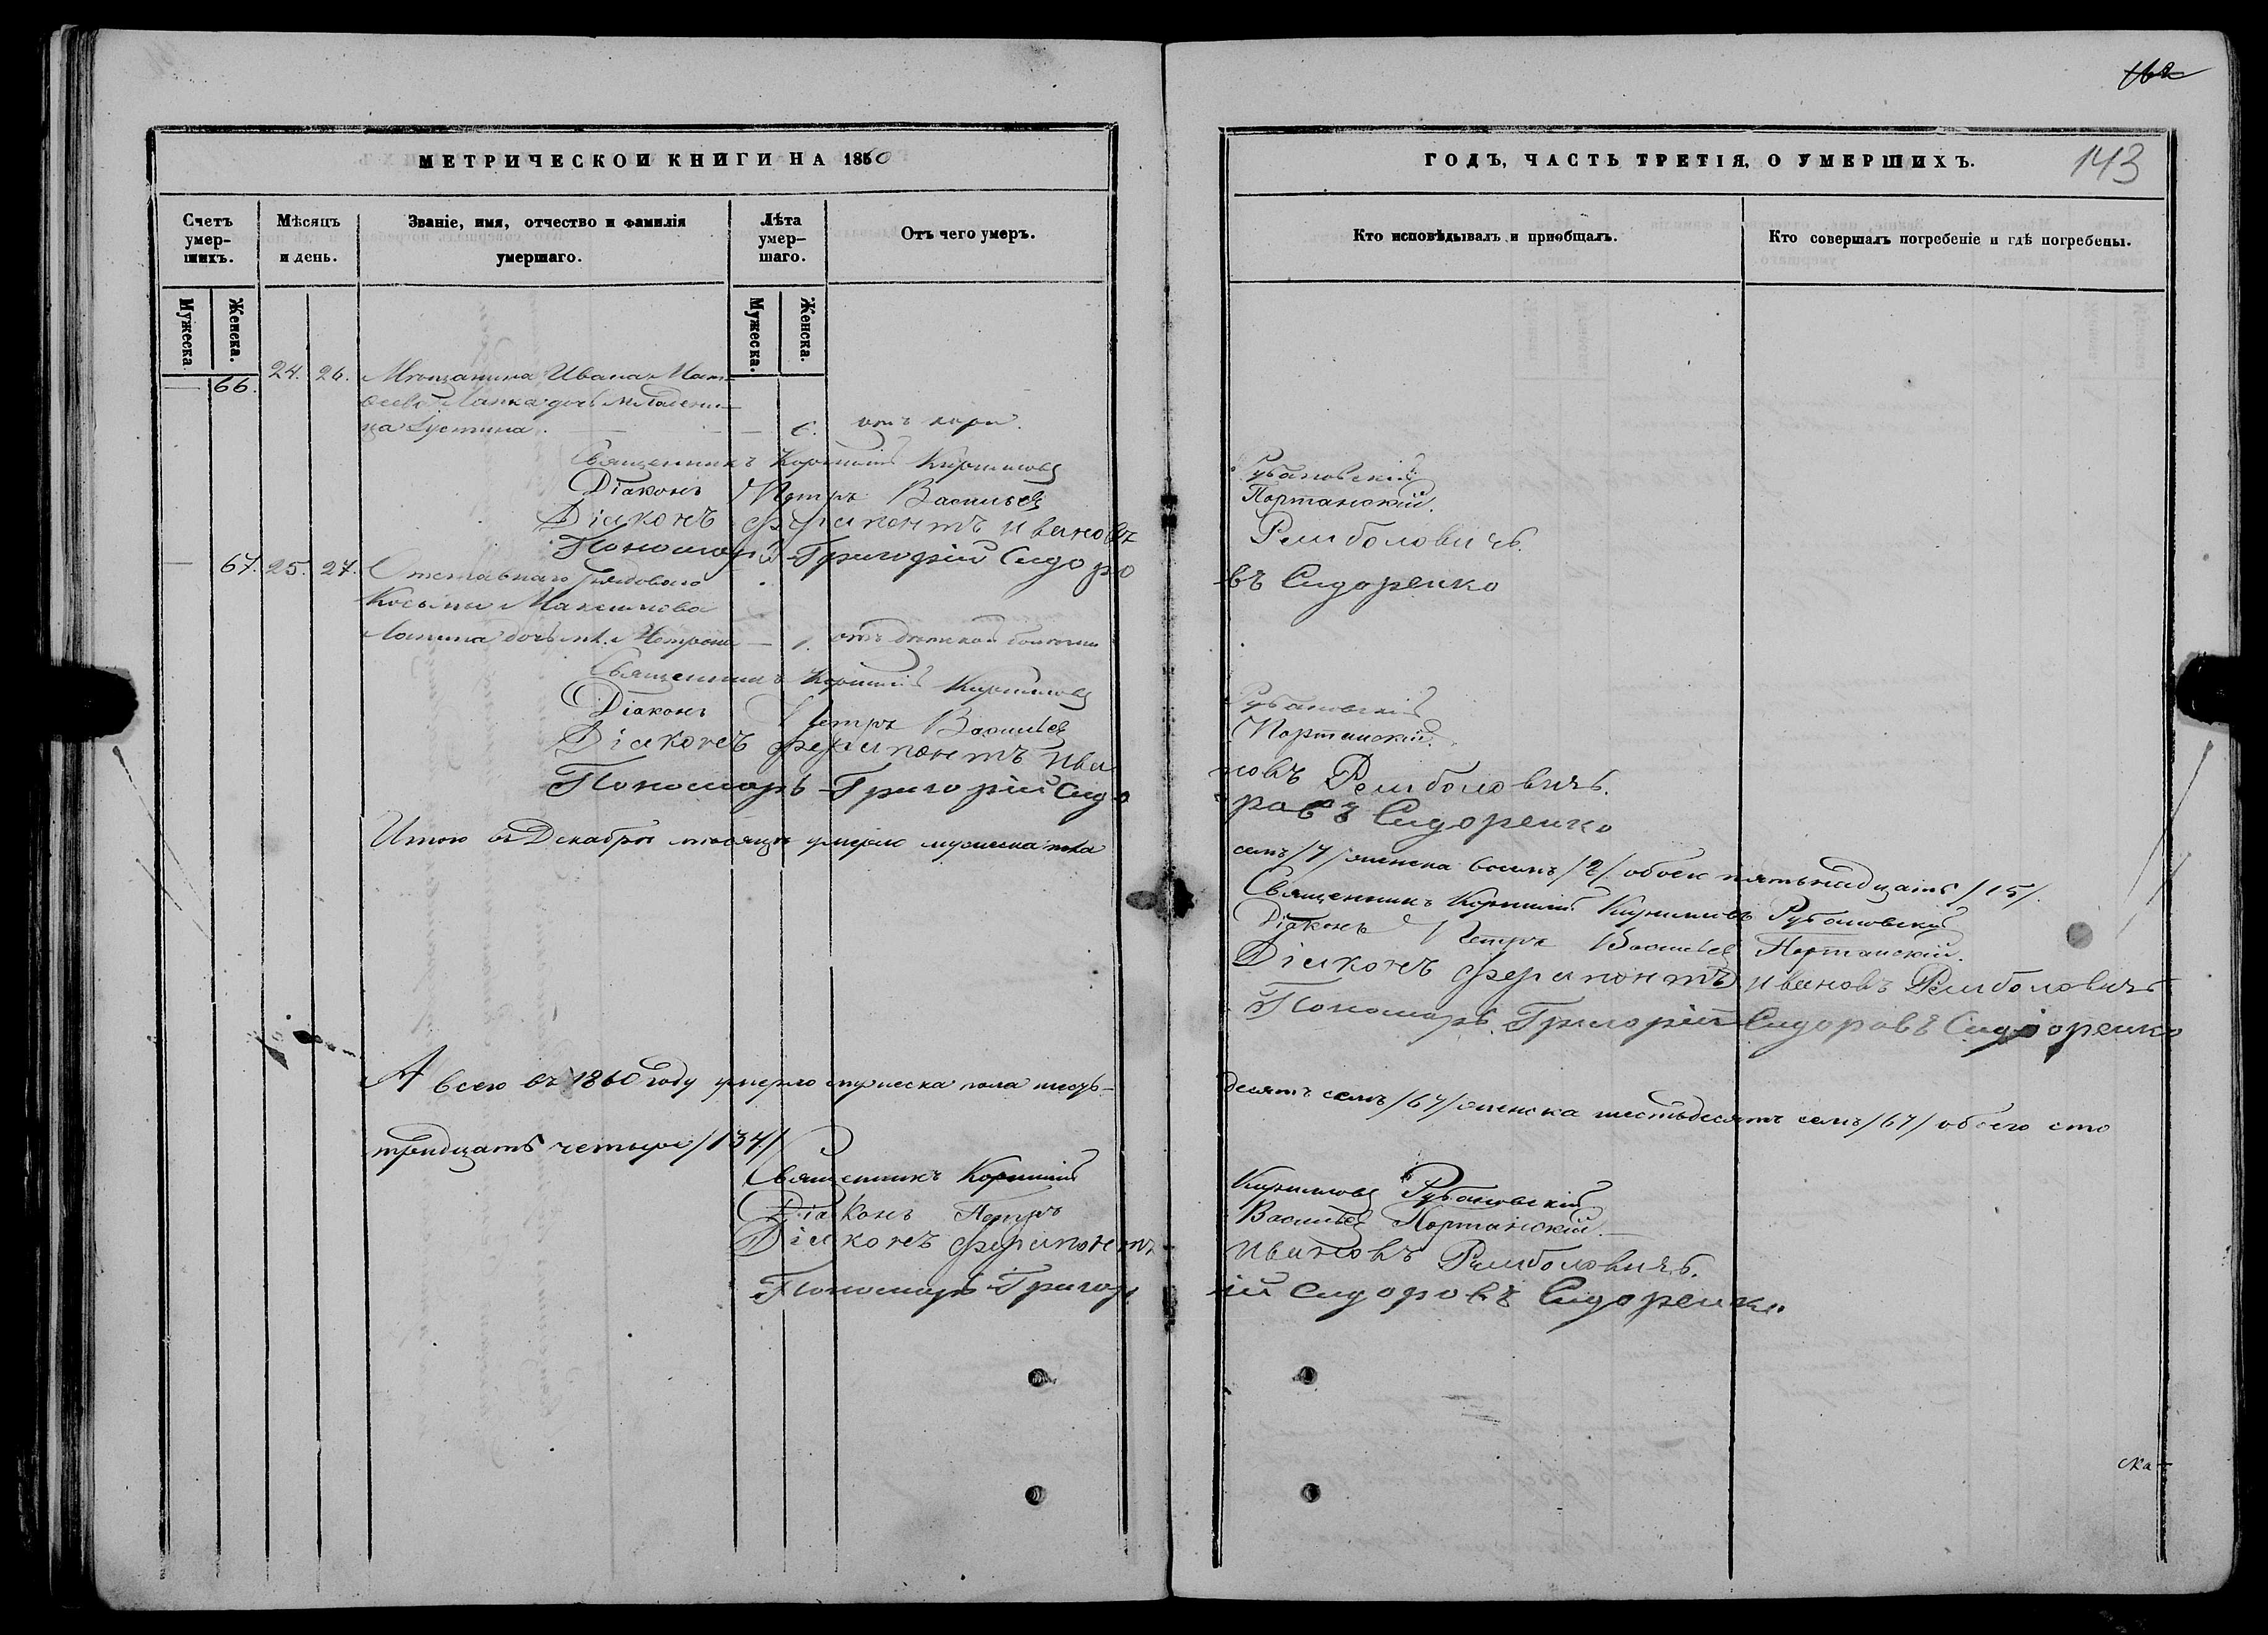 МЕТРИЧЕСКОЙ КНИГИ НА 1860
Счетъ умер-шихъ.
Мужеска.
Женска.
Мѣсяцъ и день.
Званіе, имя, отчество и фамилія умершаго.
Лѣта умер-шаго.
Мужеска.
Женска.
Отъ чего умеръ.
66. 24. 26. Мѣщанина Ивана Мат-
дочь младени-
ца Іустина. 6. отъ кори.
Священникъ Корнилій Кириловъ
Діаконъ Петръ Васильевъ
Діаконъ Ферапонтъ Ивановъ
Пономарь Григорій Сидоро
67. 25. 27. Отставнаго рядоваго
Косьмы Максимова
дочь мл. 1. отъ дѣтской болѣзни
Священникъ Корнилій Кириловъ
Діаконъ Петръ Васильевъ
Діаконъ Ферапонтъ Ива
Пономарь Григорій Сидо
Итого въ Декабрѣ мѣсяцѣ умерло мужеска пола
А всего въ 1860 году умерло мужеска пола шесть-
тридцать четыре /134/
Священникъ Корнилій
Діаконъ Петръ
Діаконъ Ферапонтъ
Пономарь Григор
162
ГОДЪ, ЧАСТЬ ТРЕТІЯ, О УМЕРШИХЪ.
143
Кто исповѣдывалъ и пріобщалъ.
Кто совершалъ погребеніе и гдѣ погребены.
Рубановскій
Портанскій.
Ремболовичъ.
въ Сидоренко
Рубановскій
Портанскій.
новъ Ремболовичъ.
ровъ Сидоренко
семь /7/ женска восемь /8/ обоего пятьнадцать /15/.
Священникъ Корнилій Кириловъ Рубановскій
Діаконъ Петръ Васильевъ Портанскій.
Діаконъ Ферапонтъ Ивановъ Ремболовичъ
Пономарь Григорій Сидоровъ Сидоренко
десятъ семь /67/ женска шестьдесятъ семь /67/ обоего сто
Кириловъ Рубановскій
Васильевъ Портанскій.
Ивановъ Ремболовичъ.
ій Сидоровъ Сидоренко.
ска-